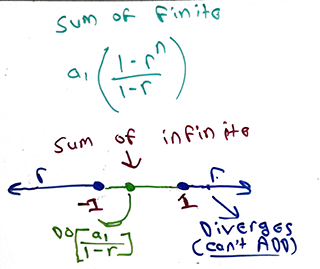 Sum of finite
a₁(1-rⁿ/1-r)
Sum of infinite
r r
-1 1
Do [a₁/1-r]
Diverges
(can't ADD)